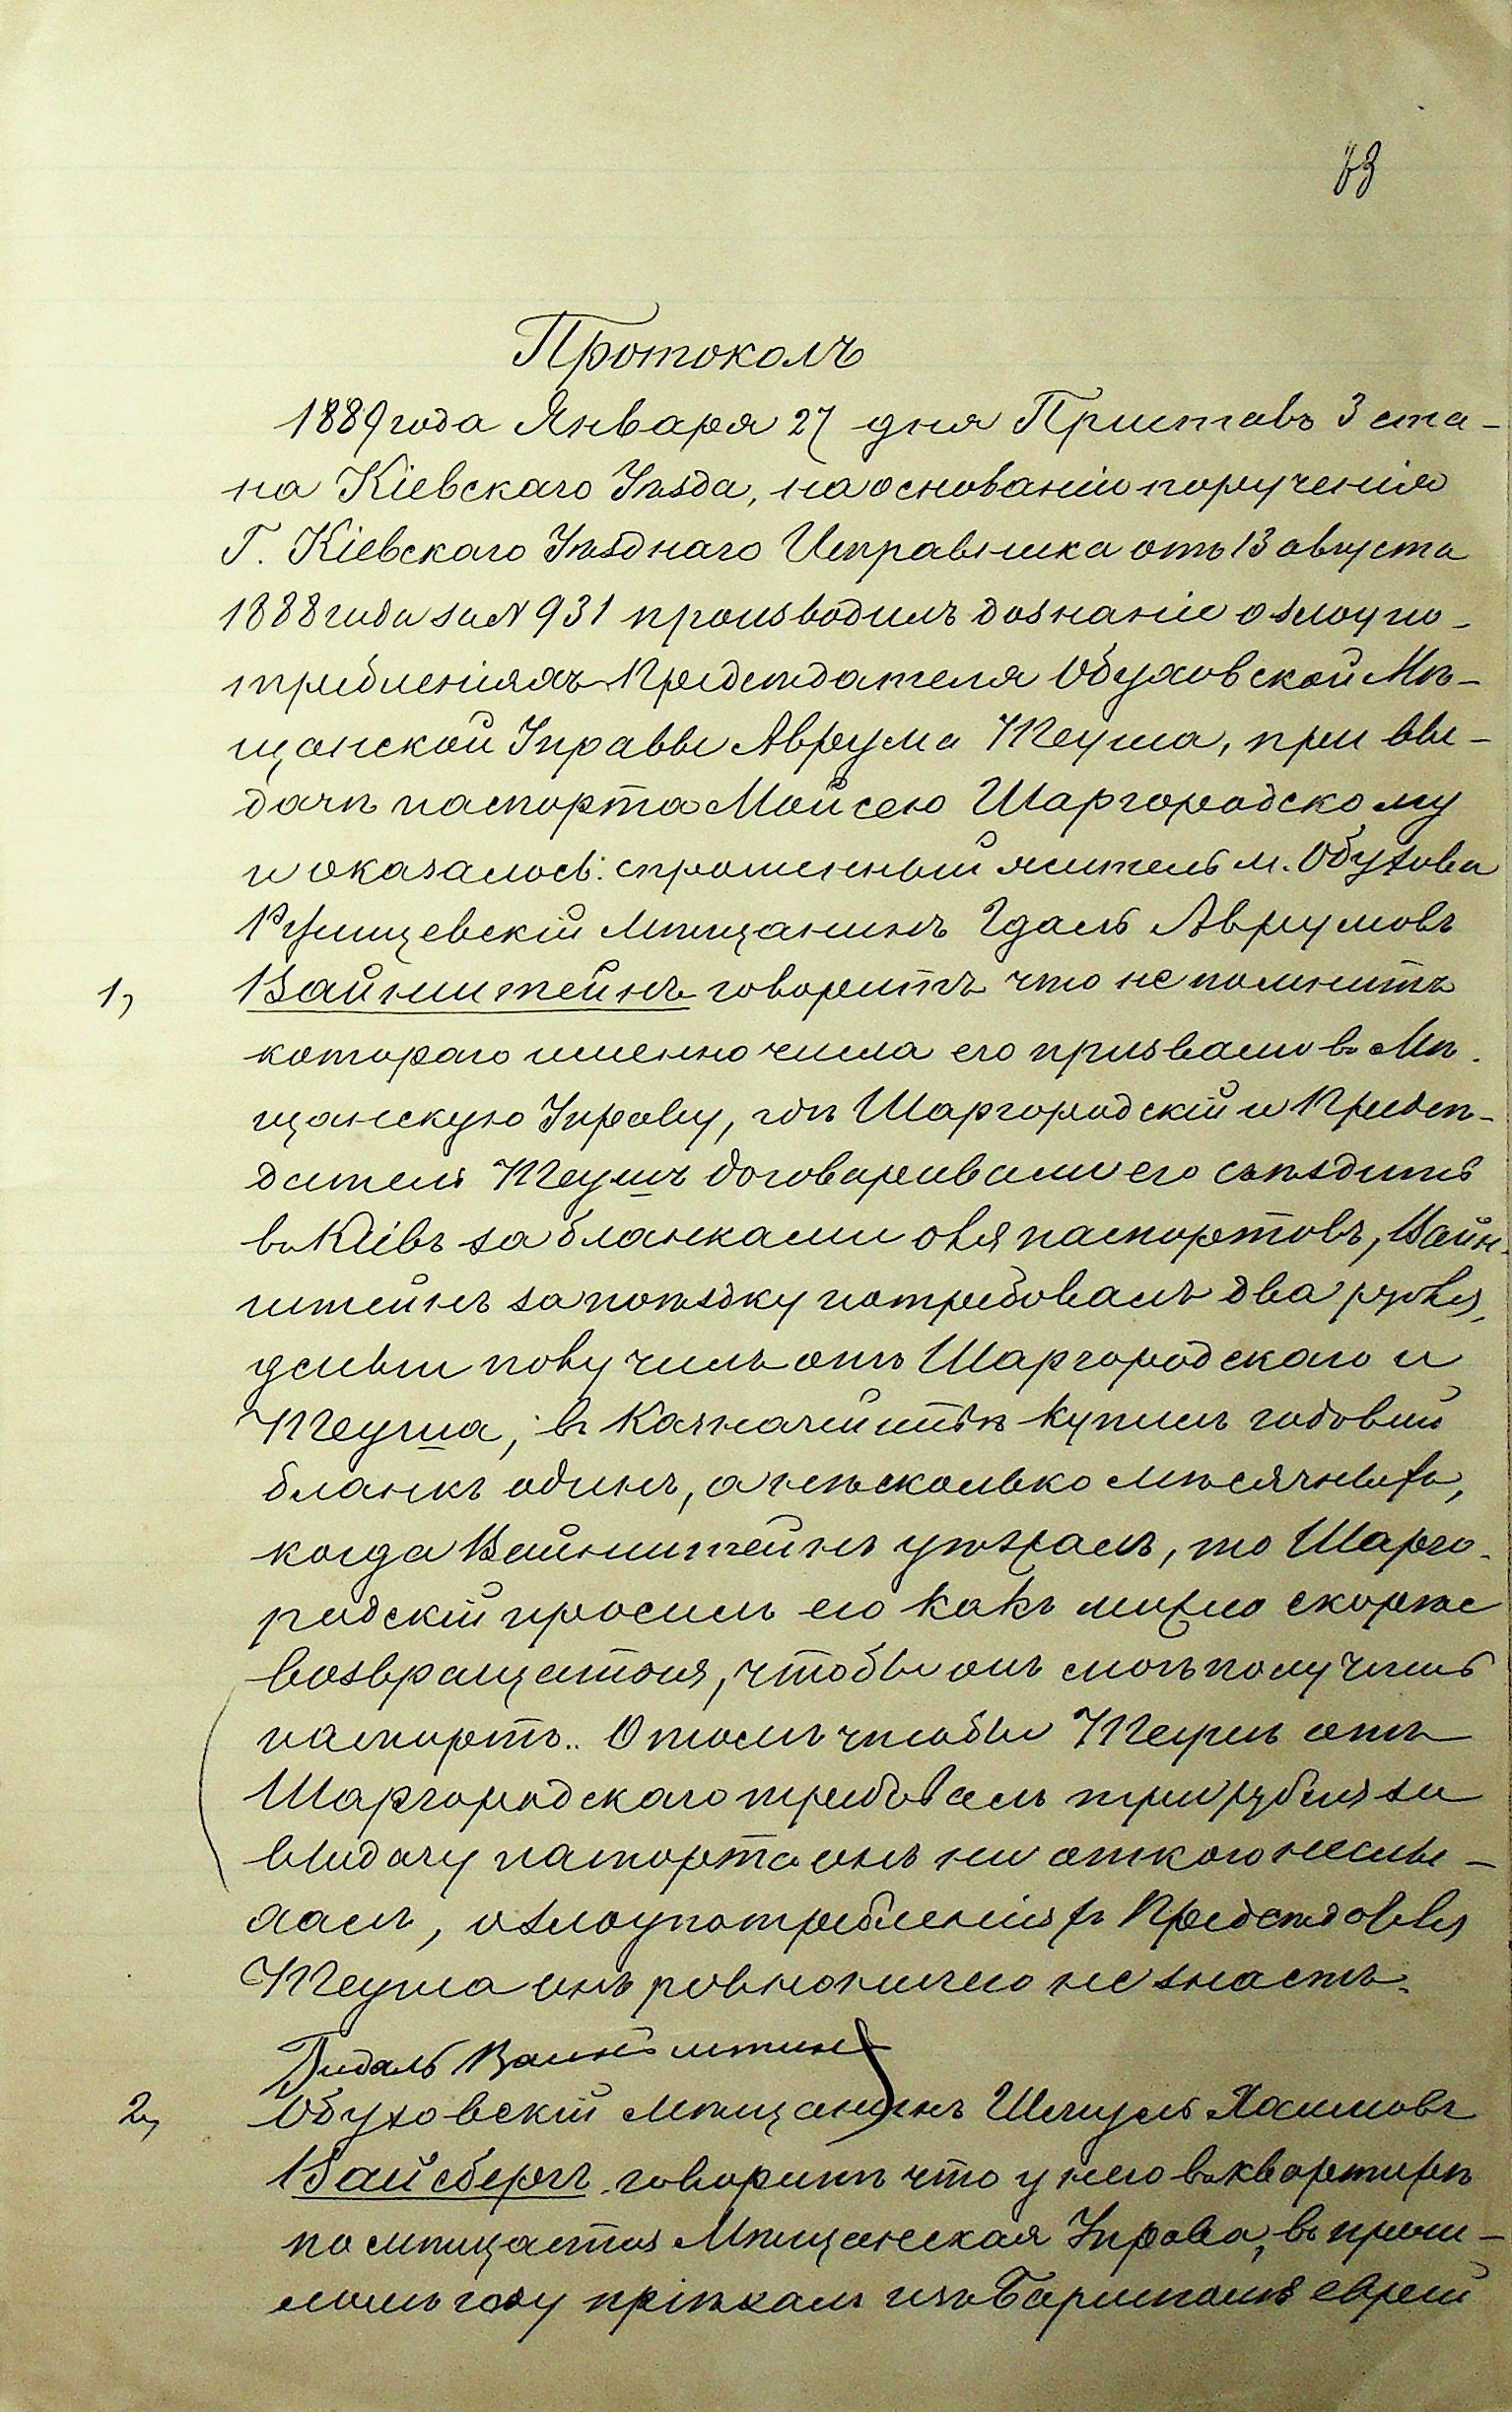 63
Протоколъ
1889 года Января 27 дня Приставъ 3 ста-
на Кіевскаго Уѣзда, на основаніи порученія
Г. Кіевскаго Уѣзднаго Исправника отъ 13 августа
1888 года за № 931 производилъ дознаніе о злоупо-
требленіяхъ Предсѣдателя Обуховской Мѣ-
щанской Управы Аврума Теуша, при вы-
дачѣ паспорта Мойсею Шаргородскому
и оказалось: спрошенный житель м. Обухова
Ржищевскій Мѣщанинъ Гдаль Аврумовъ
1, Вайнштейнъ говоритъ что не помнитъ
котораго именно числа его призвали въ Мѣ-
щанскую Управу, гдѣ Шаргородскій и Предсѣ-
датель Теушъ договаривали его съѣздить
въ Кіевъ за бланками для паспортовъ, Вайн-
штейнъ за поѣздку потребовалъ два рубля,
деньги получилъ отъ Шаргородскаго и
Теуша, въ Казначействѣ купилъ годовый
бланкъ одинъ, а нѣсколько мѣсячныхъ,
когда Вайнштейнъ уѣзжалъ, то Шарго-
родскій просилъ его какъ можно скорѣе
возвращатся, чтобы онъ могъ получить
паспортъ. О томъ чтобы Теушъ отъ
Шаргородскаго требовалъ три рубля за
выдачу паспорта онъ ни от кого не слы-
халъ, о злоупотребленіяхъ Предсѣдателя
Теуша онъ ровно ничего не знаетъ.
Гидаль Вайнштинъ
2, Обуховскій Мѣщанинъ Шмуль Хаимовъ
Вайсбергъ говоритъ что у него въ квартирѣ
помѣщается Мѣщанская Управа, въ прош-
ломъ году пріѣхалъ изъ Баришполя еврей